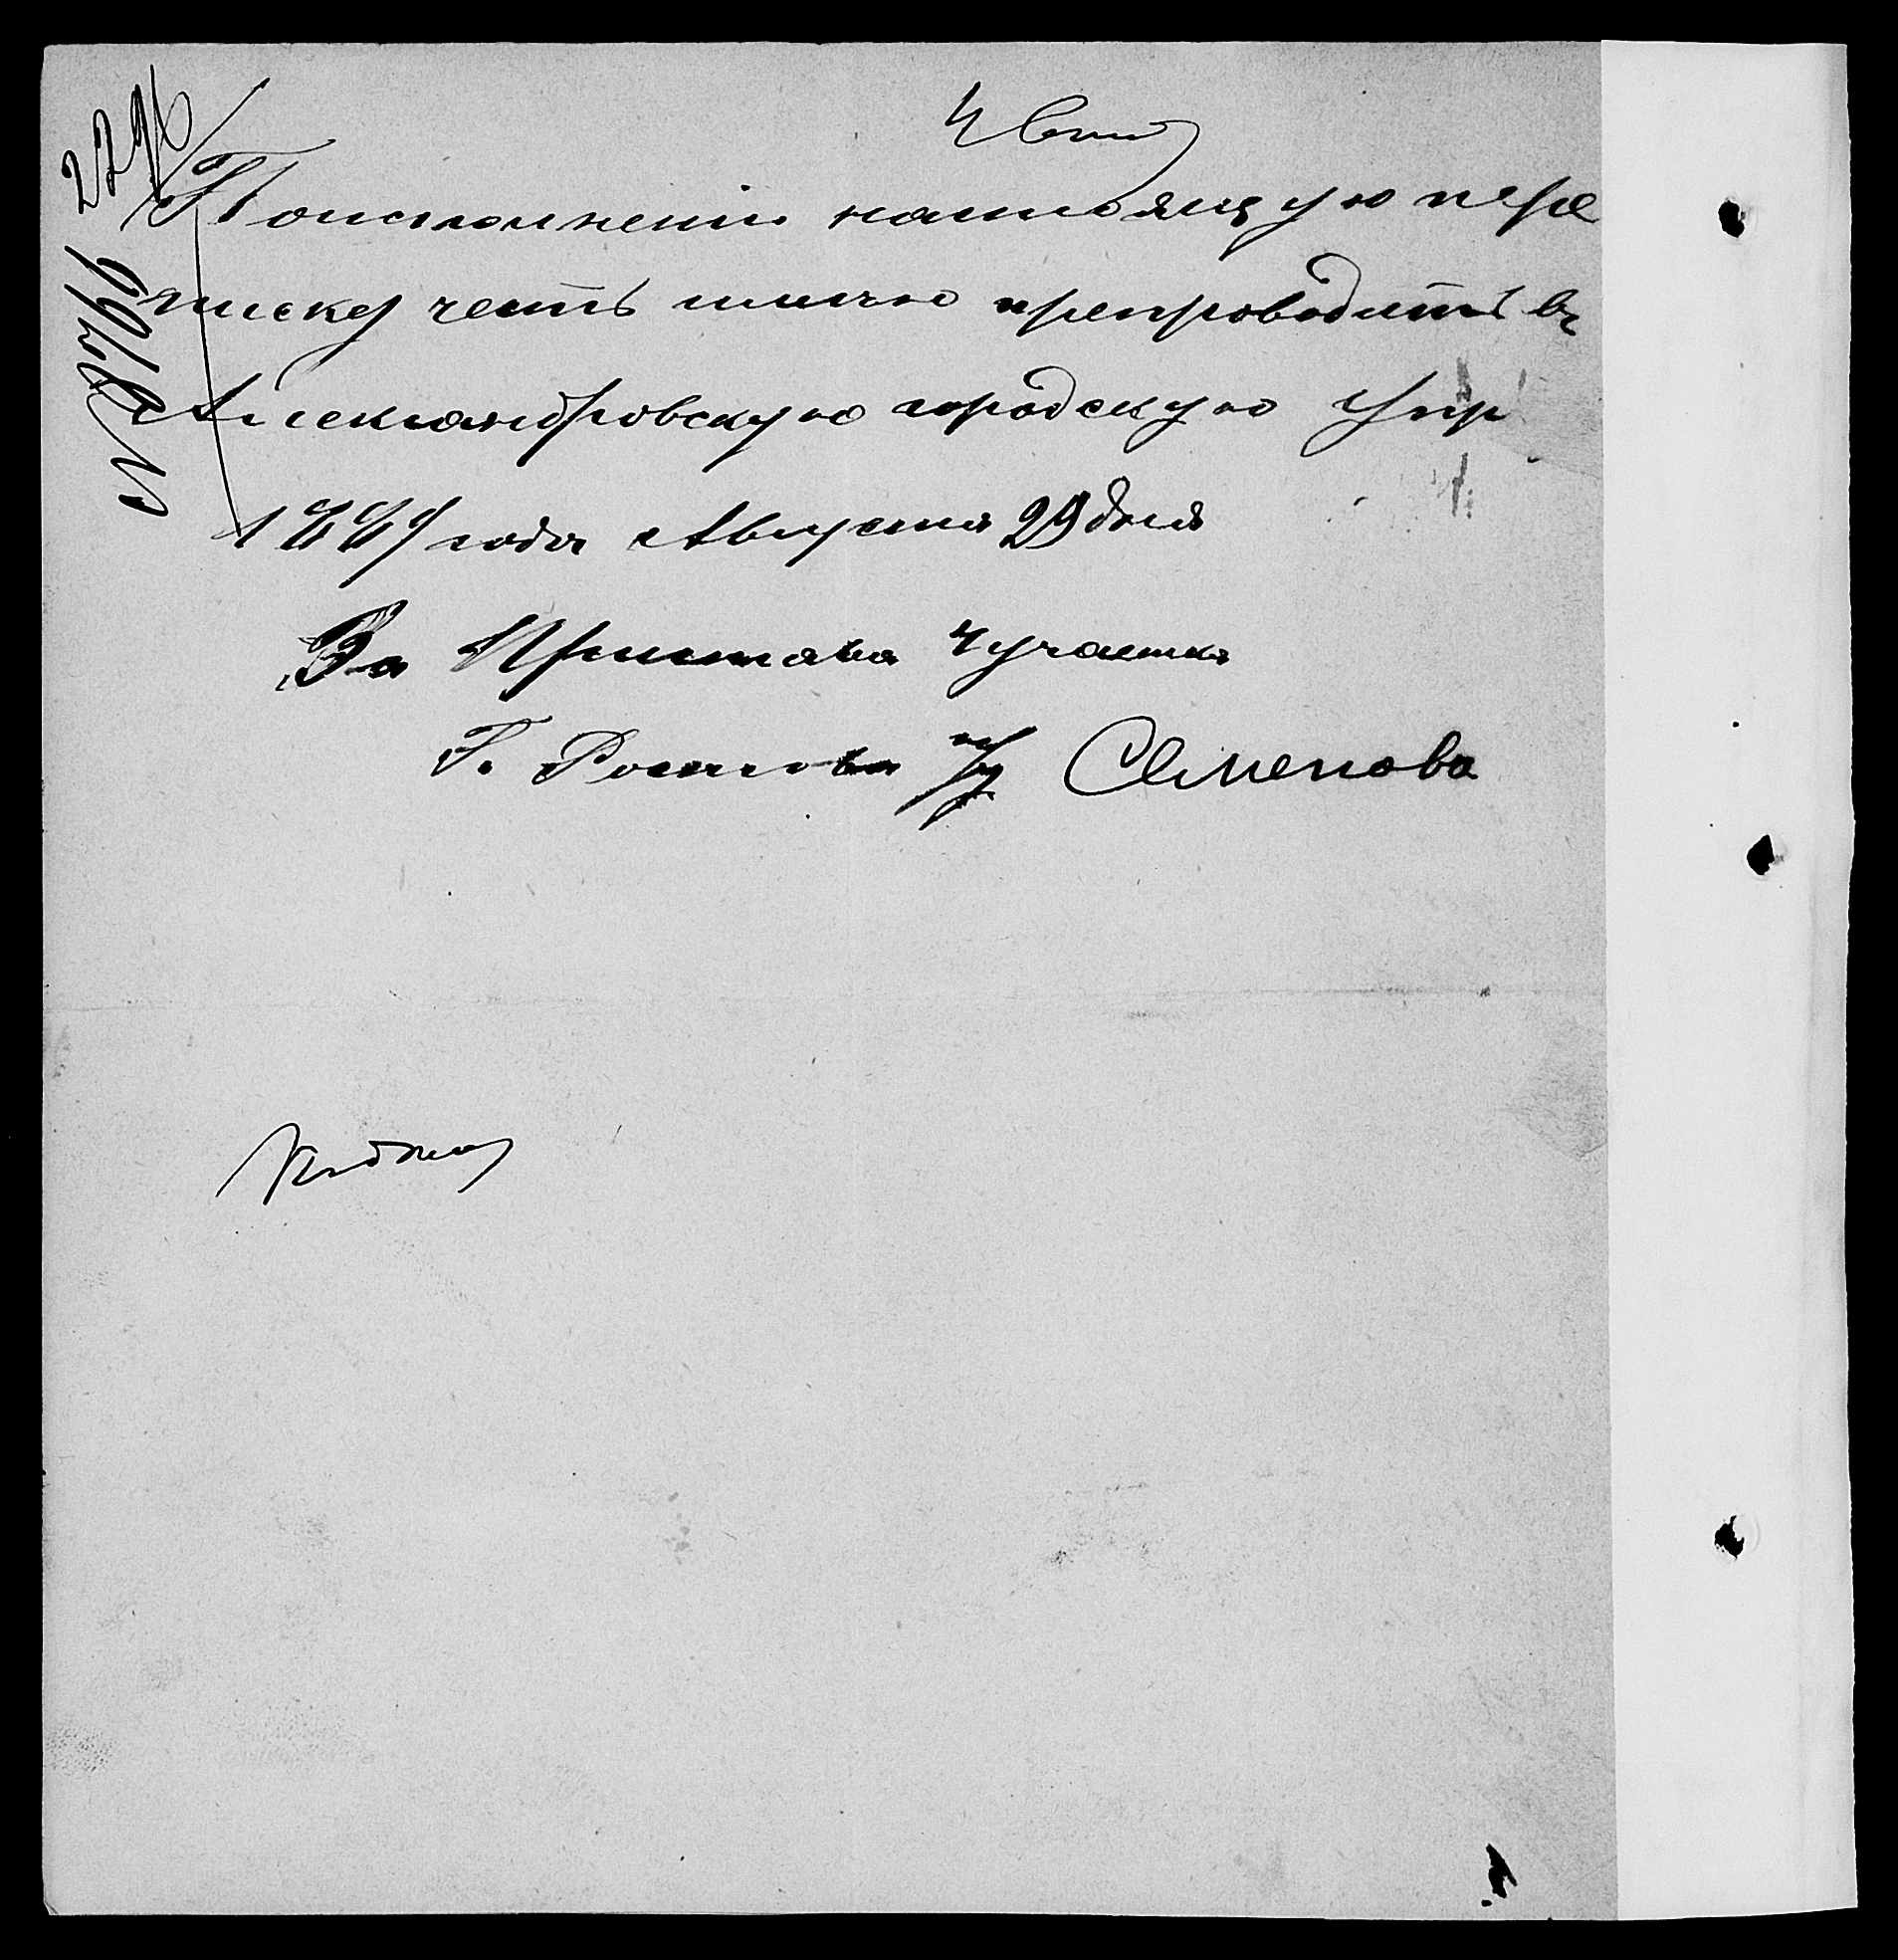 По исполнении настоящую пере
писку честь имею препроводить въ
Александровскую городскую Упр
1889 года Августа 29 дня
За Пристава 4 участка
Г. Ростова Семенова